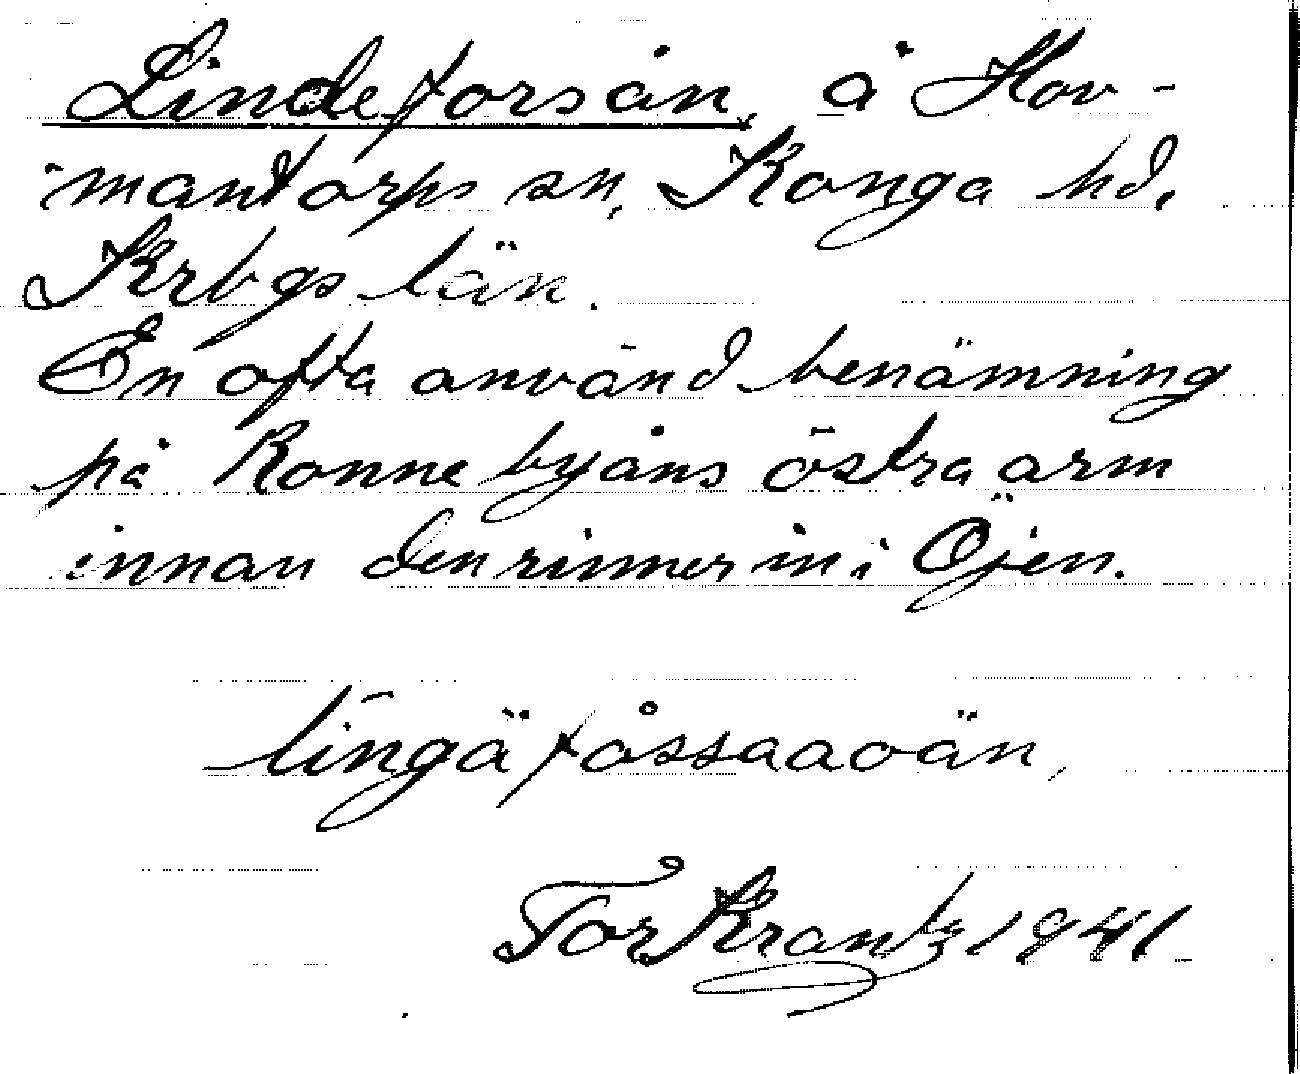 Lindeforsån, å Hov-
mantorps sn, Konga hd,
Krbgs län.
En ofta använd benämning
på Ronnebyåns östra arm
innan den rinner in i Öjen.
lingäfåssaaoän,
Tor Krantz 1941